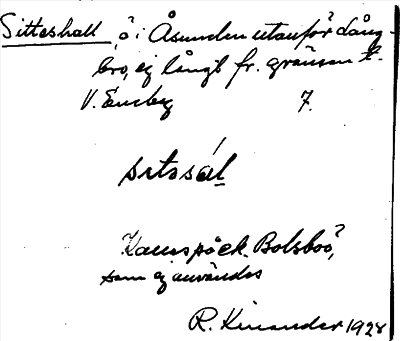 Sitteshall, ö i Åsunden utanför Lång-
bro, ej långt fr. gränsen t.
V. Eneby 7.
sitsál
Kanspåck. Bolsboö,
som ej användes
R. Kinander 1928